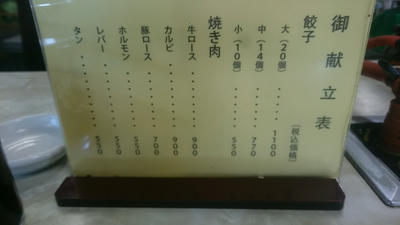 御献立表
餃子 [税込価格]
大(20個)・・・・・・1100
中(14個)・・・・・・770
小(10個)・・・・・・550
焼き肉
牛ロース・・・・・・900
カルビ・・・・・・900
豚ロース・・・・・・700
ホルモン・・・・・・550
レバー・・・・・・550
タン・・・・・・550